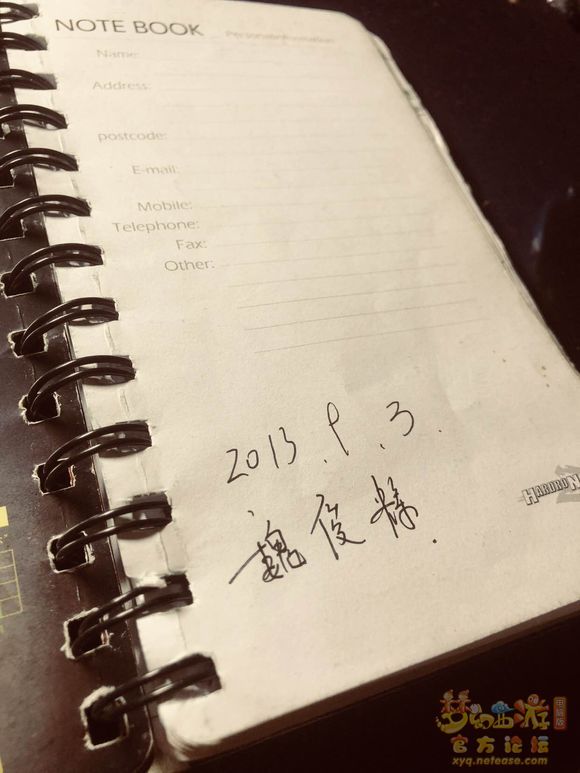 NOTE BOOK
Personalinformation
Name:
Address:
postcode:
E-mail:
Mobile:
Telephone:
Fax:
Other:
2013.9.3.
魏俊
梦幻西游 电脑版
官方论坛
xyq.netease.com